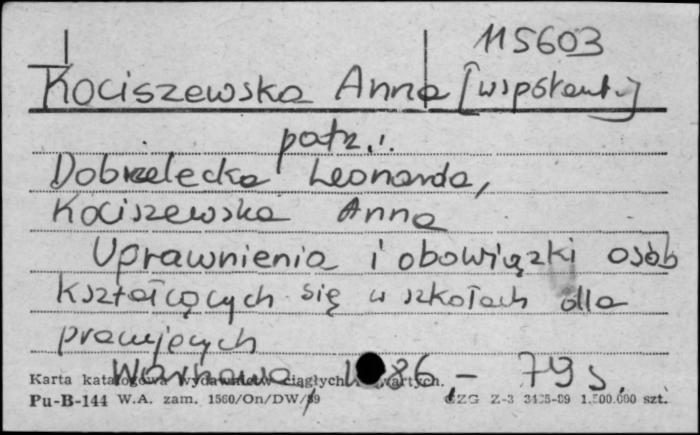 115603
Kociszewska Anna [współaut.]
patz.:
Dobrzelecka Leonarda,
Kociszewska Anna
Uprawnienia i obowiązki osób
kształcących się w szkołach dla
pracujących
Warszawa, 86,- 79 s.
Karta katalogowa wydawnictw ciągłych i zwartych.
Pu-B-144 W.A. zam. 1560/On/DW/89 CZG Z-3 1.500.000 szt.